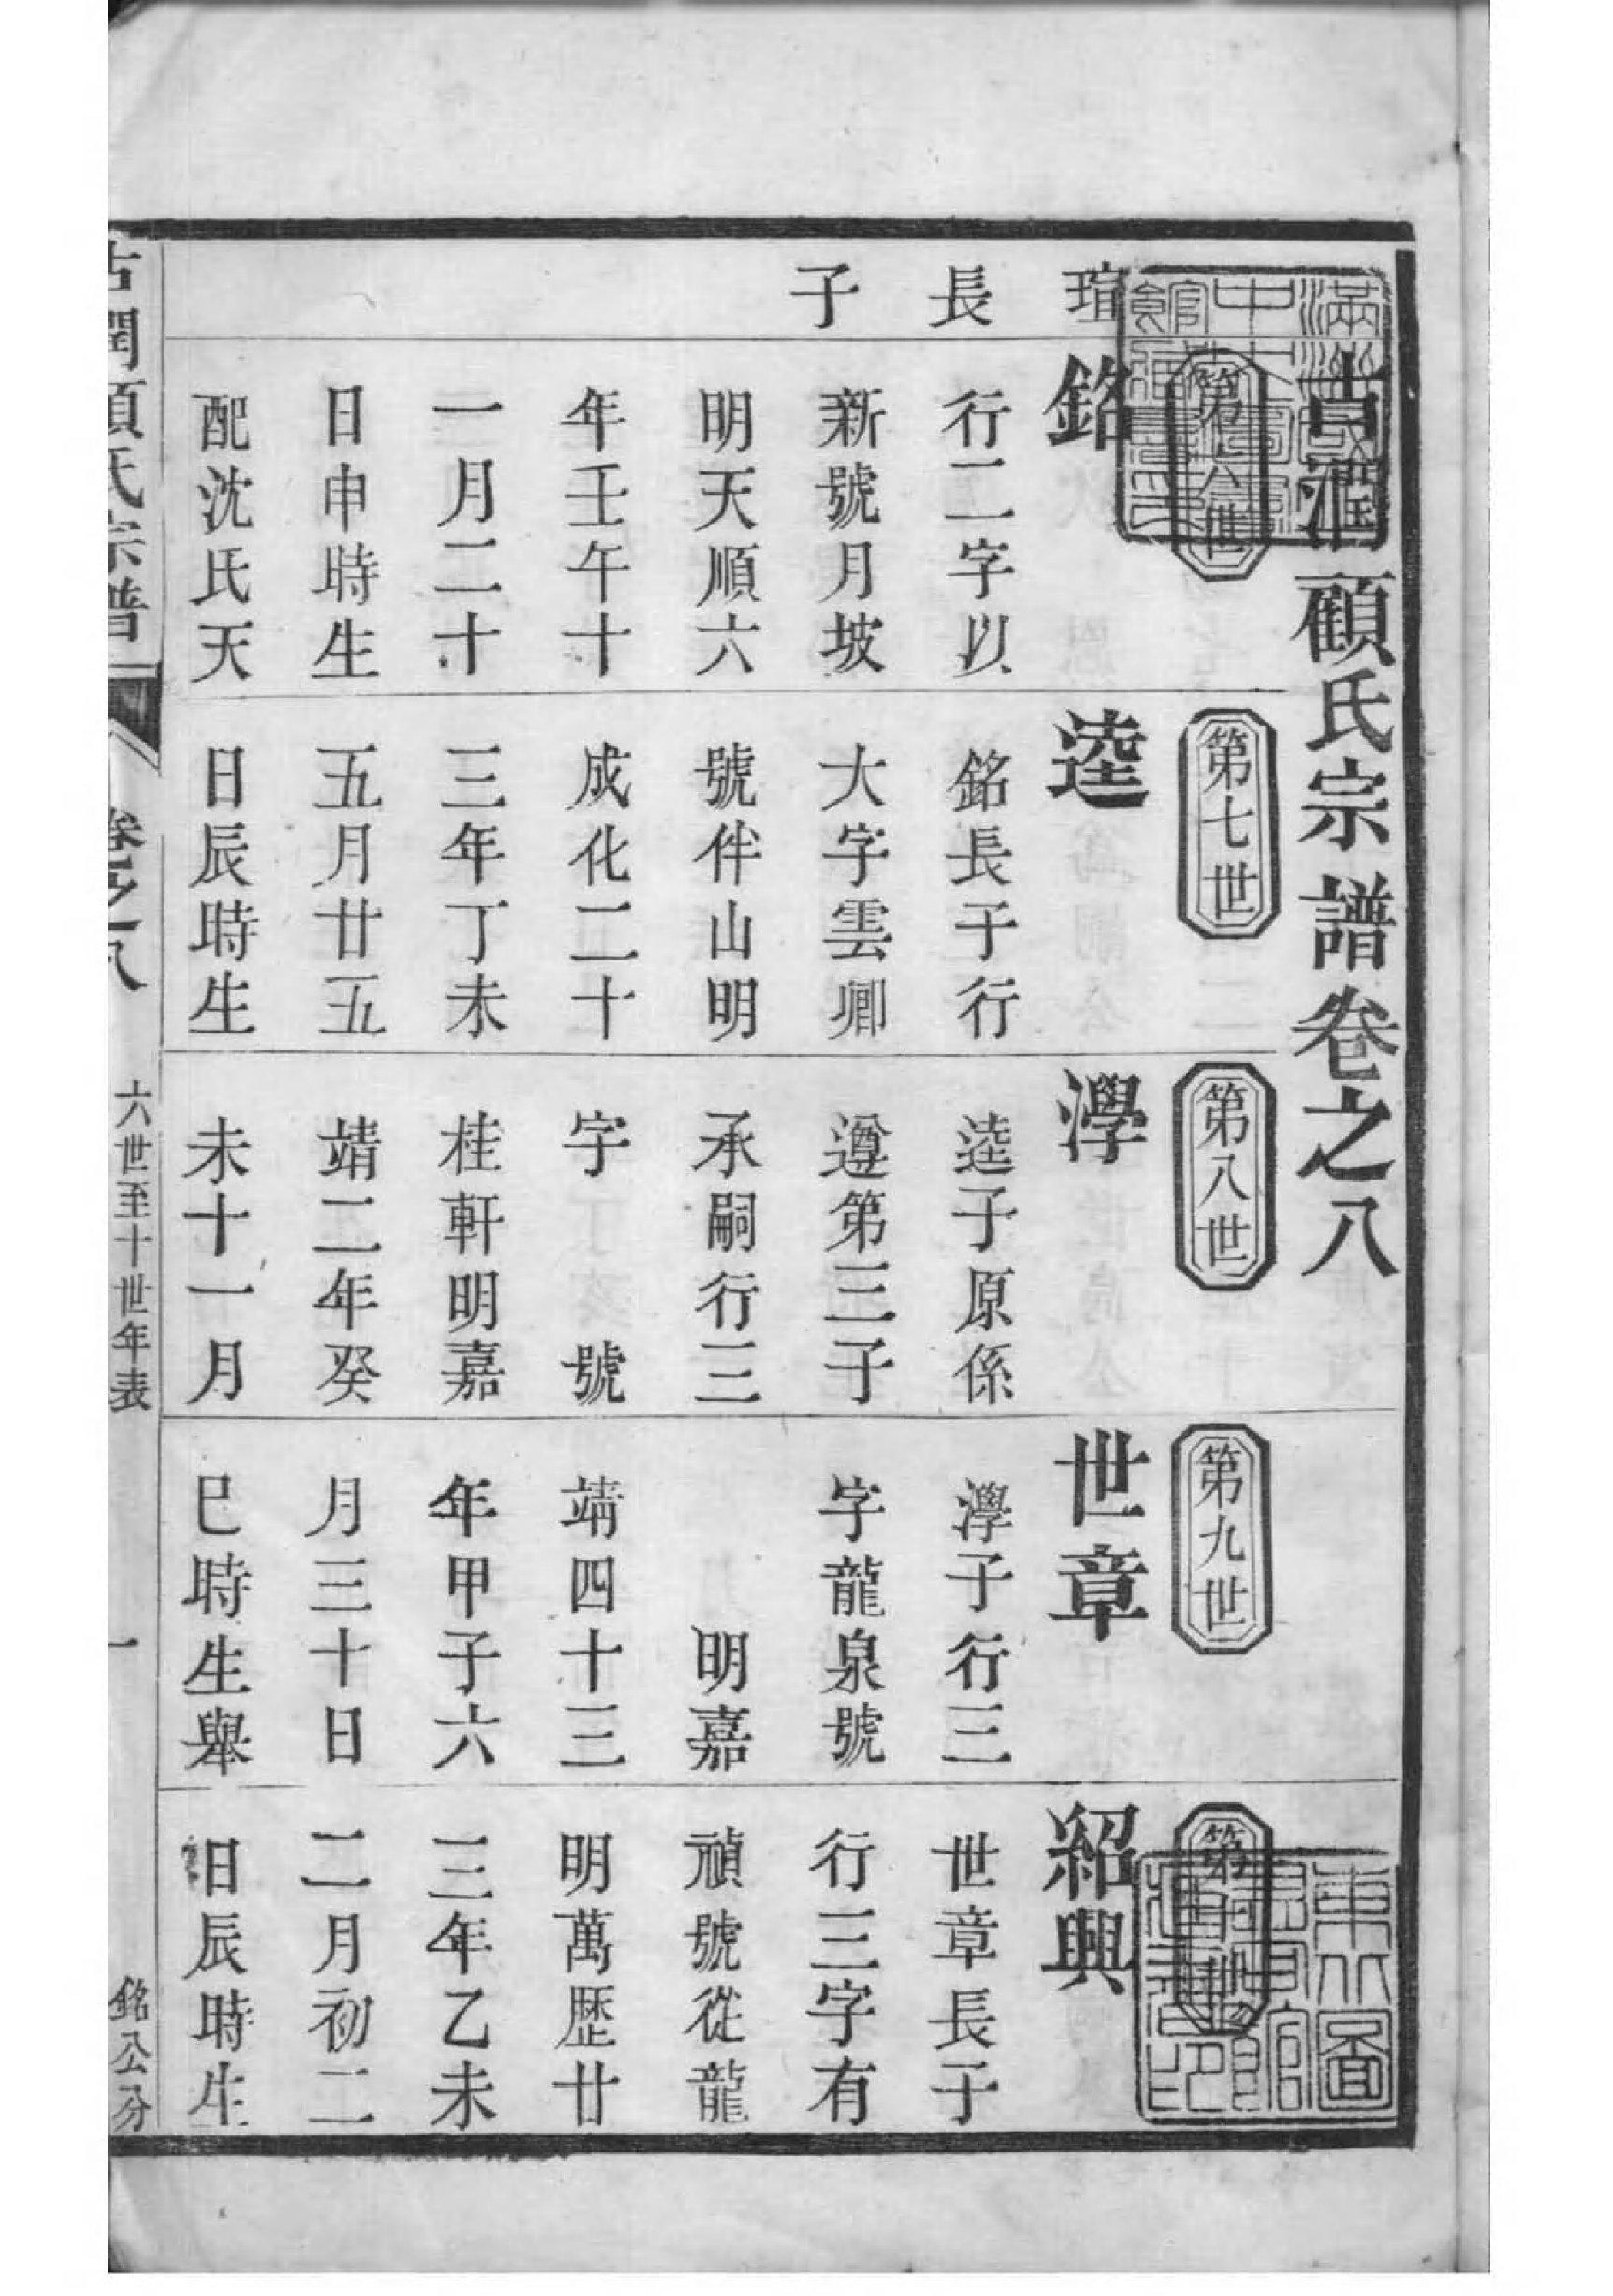 古潤顧氏宗譜卷之八
瑄長子
第六世
銘
行二字以
新號月坡
明天順六
年壬午十
一月二十
日申時生
配沈氏天
第七世
逵
銘長子行
大字雲卿
號伴山明
成化二十
三年丁未
五月廿五
日辰時生
第八世
澩
逵子原係
遵第三子
承嗣行三
字　號
桂軒明嘉
靖二年癸
未十一月
第九世
世章
澩子行三
字龍泉號
明嘉
靖四十三
年甲子六
月三十日
巳時生舉
第十世
紹興
世章長子
行三字有
禎號從龍
明萬歷廿
三年乙未
二月初二
日辰時生
古潤顧氏宗譜
卷之八
六世至十世年表
一
銘公分